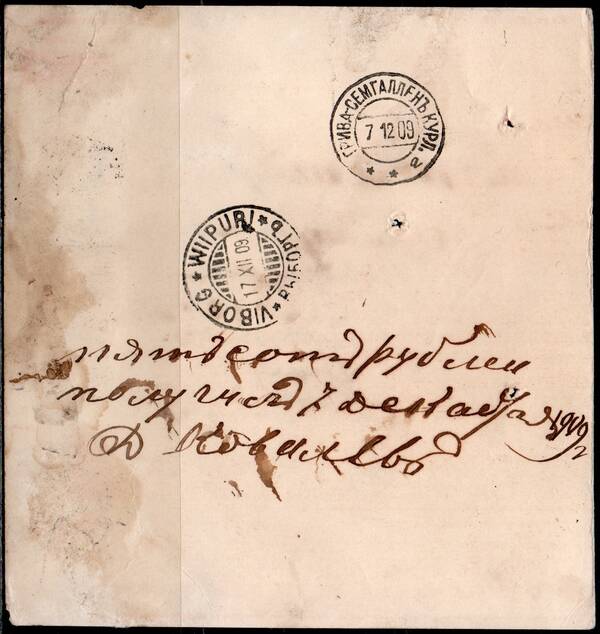 ГРИВА-СЕМГАЛЛЕНЪ КУРЛ.
7 12 09
г
WIIPURI * ВЫБОРГЪ * VIBORG *
17 XII 09
пятьсотъ рублей
получилъ 7 декабря 1909 г
Д Ковалевъ